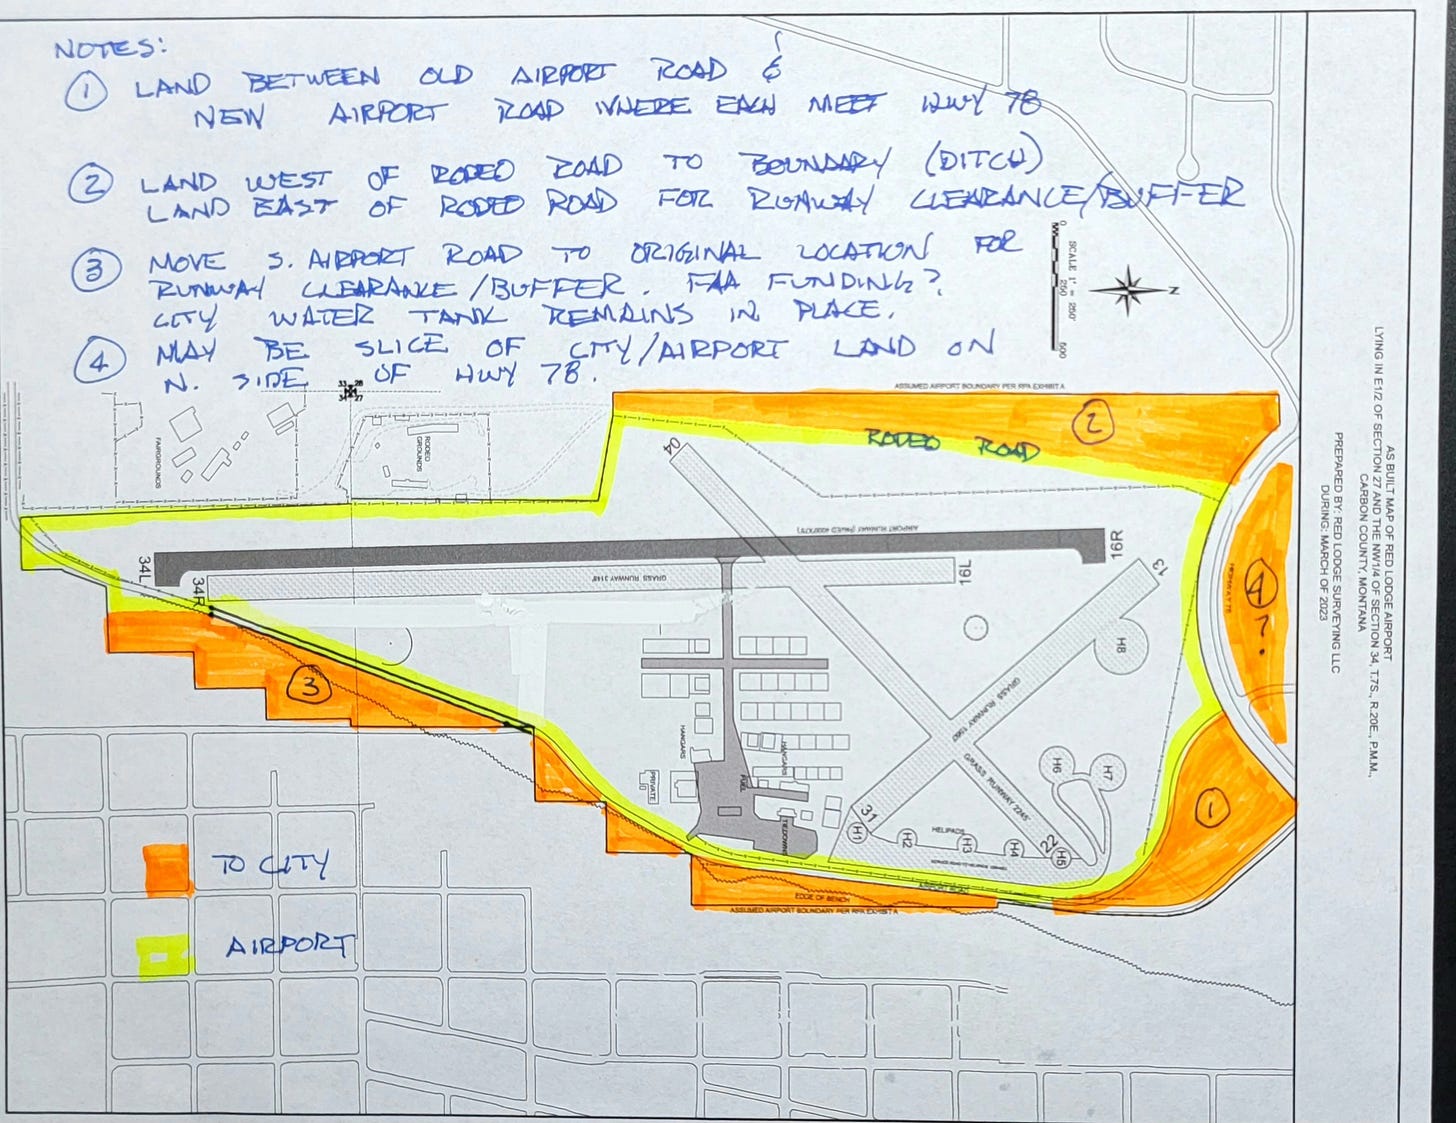 NOTES:
① LAND BETWEEN OLD AIRPORT ROAD &
NEW AIRPORT ROAD WHERE EACH MEET HWY 78
② LAND WEST OF RODEO ROAD TO BOUNDARY (DITCH)
LAND EAST OF RODEO ROAD FOR RUNWAY CLEARANCE/BUFFER
③ MOVE S. AIRPORT ROAD TO ORIGINAL LOCATION FOR
RUNWAY CLEARANCE/BUFFER. FAA FUNDING?
CITY WATER TANK REMAINS IN PLACE.
④ MAY BE SLICE OF CITY/AIRPORT LAND ON
N. SIDE OF HWY 78.
SCALE 1" = 250'
0
250
500
N
33 28
34 27
ASSUMED AIRPORT BOUNDARY PER RPA EXHIBIT A
②
RODEO ROAD
FAIRGROUNDS
RODEO GROUNDS
04
AIRPORT RUNWAY (PAVED 4000'X75')
16R
13
34L
34R
GRASS RUNWAY 3148'
16L
HIGHWAY 78
④ ?
H8
③
GRASS RUNWAY 1960'
GRASS RUNWAY 2245'
HANGARS
HANGARS
PRIVATE
FUEL
TIEDOWNS
H6
H7
①
31
H1
H2
HELIPADS
H3
H4
22
H5
AIRPORT ROAD
EDGE OF BENCH
ASSUMED AIRPORT BOUNDARY PER RPA EXHIBIT A
TO CITY
AIRPORT
AS BUILT MAP OF RED LODGE AIRPORT
LYING IN E1/2 OF SECTION 27 AND THE NW1/4 OF SECTION 34, T.7S., R.20E., P.M.M.,
CARBON COUNTY, MONTANA
PREPARED BY: RED LODGE SURVEYING LLC
DURING: MARCH OF 2023